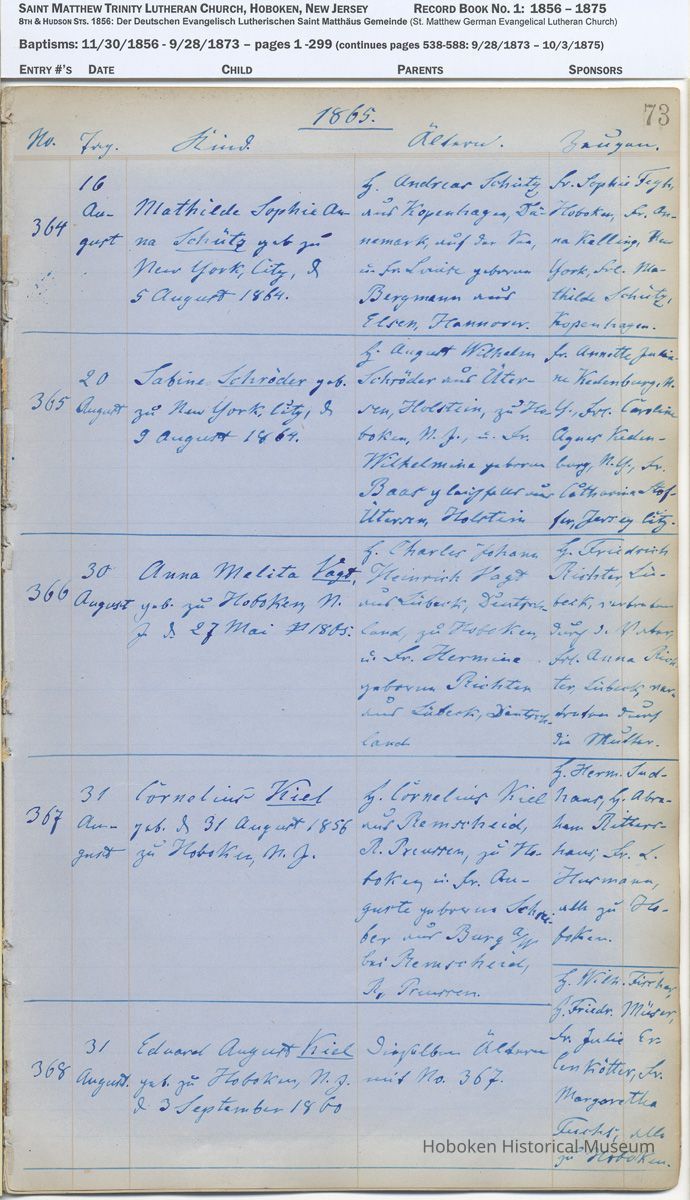 SAINT MATTHEW TRINITY LUTHERAN CHURCH, HOBOKEN, NEW JERSEY RECORD BOOK NO. 1: 1856 – 1875
8TH & HUDSON STS. 1856: Der Deutschen Evangelisch Lutherischen Saint Matthäus Gemeinde (St. Matthew German Evangelical Lutheran Church)
Baptisms: 11/30/1856 - 9/28/1873 – pages 1 -299 (continues pages 538-588: 9/28/1873 – 10/3/1875)
ENTRY #'S DATE CHILD PARENTS SPONSORS
1865. 73
No. Tag. Kind. Ältern. Zeugen.
364
16
Au-
gust
Mathilde Sophie An-
na Schütz geb. zu
New York, City, d
5 August 1864.
H. Andreas Schütz,
aus Kopenhagen, Dä-
nemark, auf der See,
u. Fr. Louise geborene
Bergmann aus
Elsen, Hannover.
Fr. Sophie
Hoboken, Fr. An-
na Kelling, New
York, Frl. Ma-
thilde Schütz,
Kopenhagen.
365
20
August
Sabine Schröder geb.
zu New York, City, d
9 August 1864.
H. August Wilhelm
Schröder aus Üter-
sen, Holstein, zu Ho-
boken, N. J., u. Fr.
Wilhelmine geborene
Baas gleichfalls aus
Ütersen, Holstein
Fr. Annette
N.
Y., Frl. Caroline
Agnes
burg, N.Y., Fr.
Catharina
Jersey City.
366
30
August
Anna Melita Vagt,
geb. zu Hoboken, N.
J. d. 27 Mai 1865.
H. Charles Johann
Heinrich Vagt
aus Lübeck, Deutsch-
land, zu Hoboken,
u. Fr. Hermine
geborene Richter
aus Lübeck, Deutsch-
land
H. Friedrich
Richter Lü-
beck, vertreten
durch d. Vater,
Frl. Anna Rich-
ter, Lübeck, ver-
treten durch
die Mutter.
367
31
Au-
gust
Cornelius Kiel
geb. d. 31 August 1856
zu Hoboken, N. J.
H. Cornelius Kiel
aus Remscheid,
R. Preussen, zu Ho-
boken u. Fr. Au-
guste geborene
aus Burg a/W
bei Remscheid,
R. Preussen.
H. Herm. Sud-
haus, H. Abra-
ham Ritters-
haus, Fr. L.
Husmann,
alle zu Ho-
boken.
368
31
August.
Eduard August Kiel
geb. zu Hoboken, N. J.
d 3 September 1860
Dieselben Ältern
mit No. 367.
H. Wilh.
H. Friedr. Müser,
Fr. Julie Er-
lenkötter, Fr.
Margaretha
Fuchs, alle
zu Hoboken.
Hoboken Historical Museum